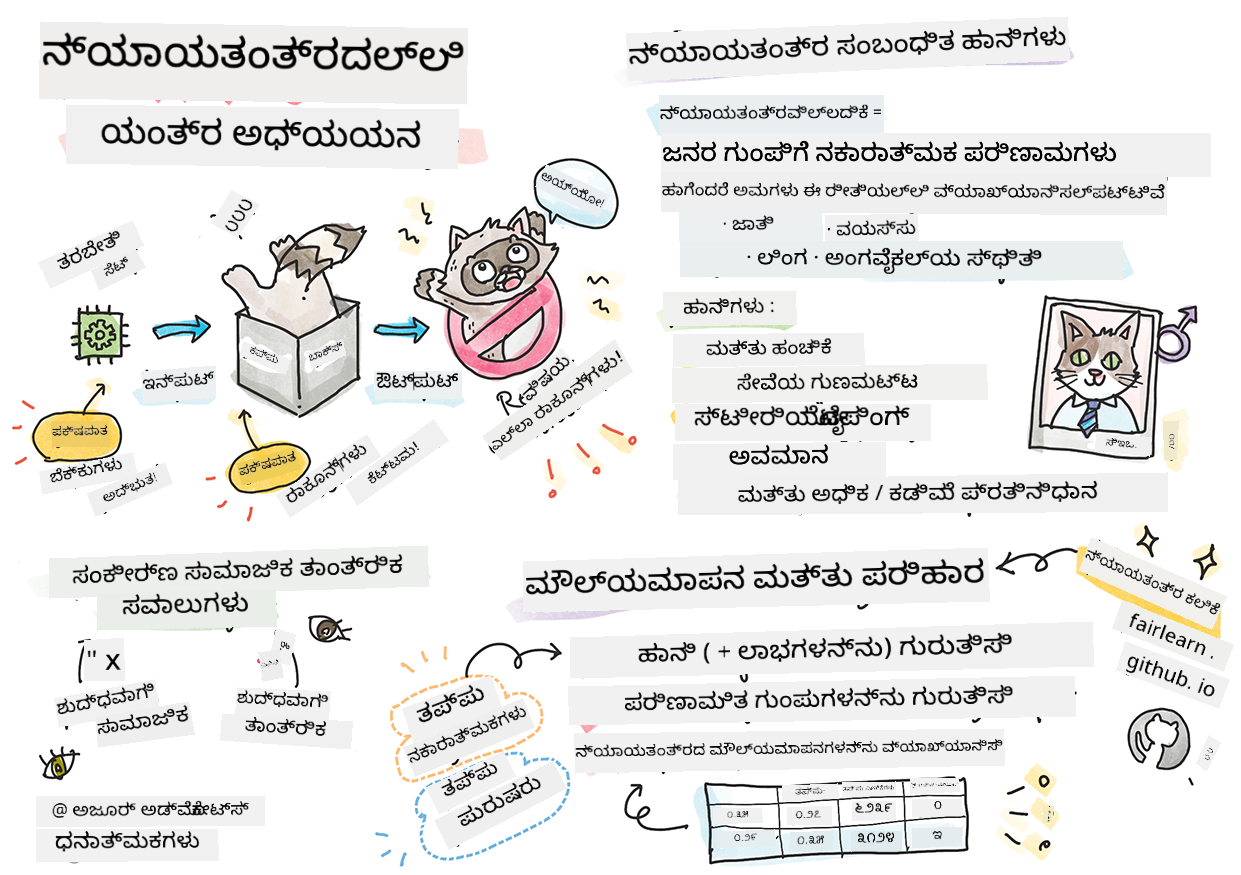 ನ್ಯಾಯತಂತ್ರದಲ್ಲಿ
ಯಂತ್ರ ಅಧ್ಯಯನ
ತರಬೇತಿ
ಸೆಟ್
ಇನ್‌ಪುಟ್
ಬಾಕ್ಸ್
ಔಟ್‌ಪುಟ್
ಅಯ್ಯೋ!
ವಿಷಯ.
ಎಲ್ಲಾ ರಾಕೂನ್‌ಗಳು!
ಪಕ್ಷಪಾತ
ಬೆಕ್ಕುಗಳು
ಅದ್ಭುತ!
ಪಕ್ಷಪಾತ
ರಾಕೂನ್‌ಗಳು
ಕೆಟ್ಟಮ!
ನ್ಯಾಯತಂತ್ರ ಸಂಬಂಧಿತ ಹಾನಿಗಳು
ನ್ಯಾಯತಂತ್ರವಿಲ್ಲದಿಕೆ =
ಜನರ ಗುಂಪಿಗೆ ನಕಾರಾತ್ಮಕ ಪರಿಣಾಮಗಳು
ಹಾಗೆಂದರೆ ಅಮಗಳು ಈ ರೀತಿಯಲ್ಲಿ ವ್ಯಾಖ್ಯಾನಿಸಲ್ಪಟ್ಟಿವೆ
· ಜಾತಿ · ವಯಸ್ಸು
· ಲಿಂಗ · ಅಂಗವೈಕಲ್ಯ ಸ್ಥಿತಿ
ಹಾನಿಗಳು :
ಮತ್ತು ಹಂಚಿಕೆ
ಸೇವೆಯ ಗುಣಮಟ್ಟ
ಸ್ಟೀರಿಯೊಟೈಪಿಂಗ್
ಅವಮಾನ
ಮತ್ತು ಅಧಿಕ / ಕಡಿಮೆ ಪ್ರತಿನಿಧಾನ
ಸಂಕೀರ್ಣ ಸಾಮಾಜಿಕ ತಾಂತ್ರಿಕ
ಸವಾಲುಗಳು
" x
ಶುದ್ಧವಾಗಿ
ಸಾಮಾಜಿಕ
ಶುದ್ಧವಾಗಿ
ತಾಂತ್ರಿಕ
@ ಅಜೂರ್ ಅಡ್ವೊಕೇಟ್ಸ್
ಧನಾತ್ಮಕಗಳು
ಮೌಲ್ಯಮಾಪನ ಮತ್ತು ಪರಿಹಾರ
ನ್ಯಾಯತಂತ್ರ ಕಲಿಕೆ
fairlearn .
github. io
ಹಾನಿ ( + ಲಾಭಗಳನ್ನು) ಗುರುತಿಸಿ
ಪರಿಣಾಮಿತ ಗುಂಪುಗಳನ್ನು ಗುರುತಿಸಿ
ನ್ಯಾಯತಂತ್ರದ ಮೌಲ್ಯಮಾಪನಗಳನ್ನು ವ್ಯಾಖ್ಯಾನಿಸಿ
ತಪ್ಪು
ನಕಾರಾತ್ಮಕಗಳು
ತಪ್ಪು
ಪುರುಷರು
೦.೩೫ ೦.೨೭ ೬೨೩೯ ೦
೦.೨೯ ೦.೩೫ ೩೧೨೪ ಇ